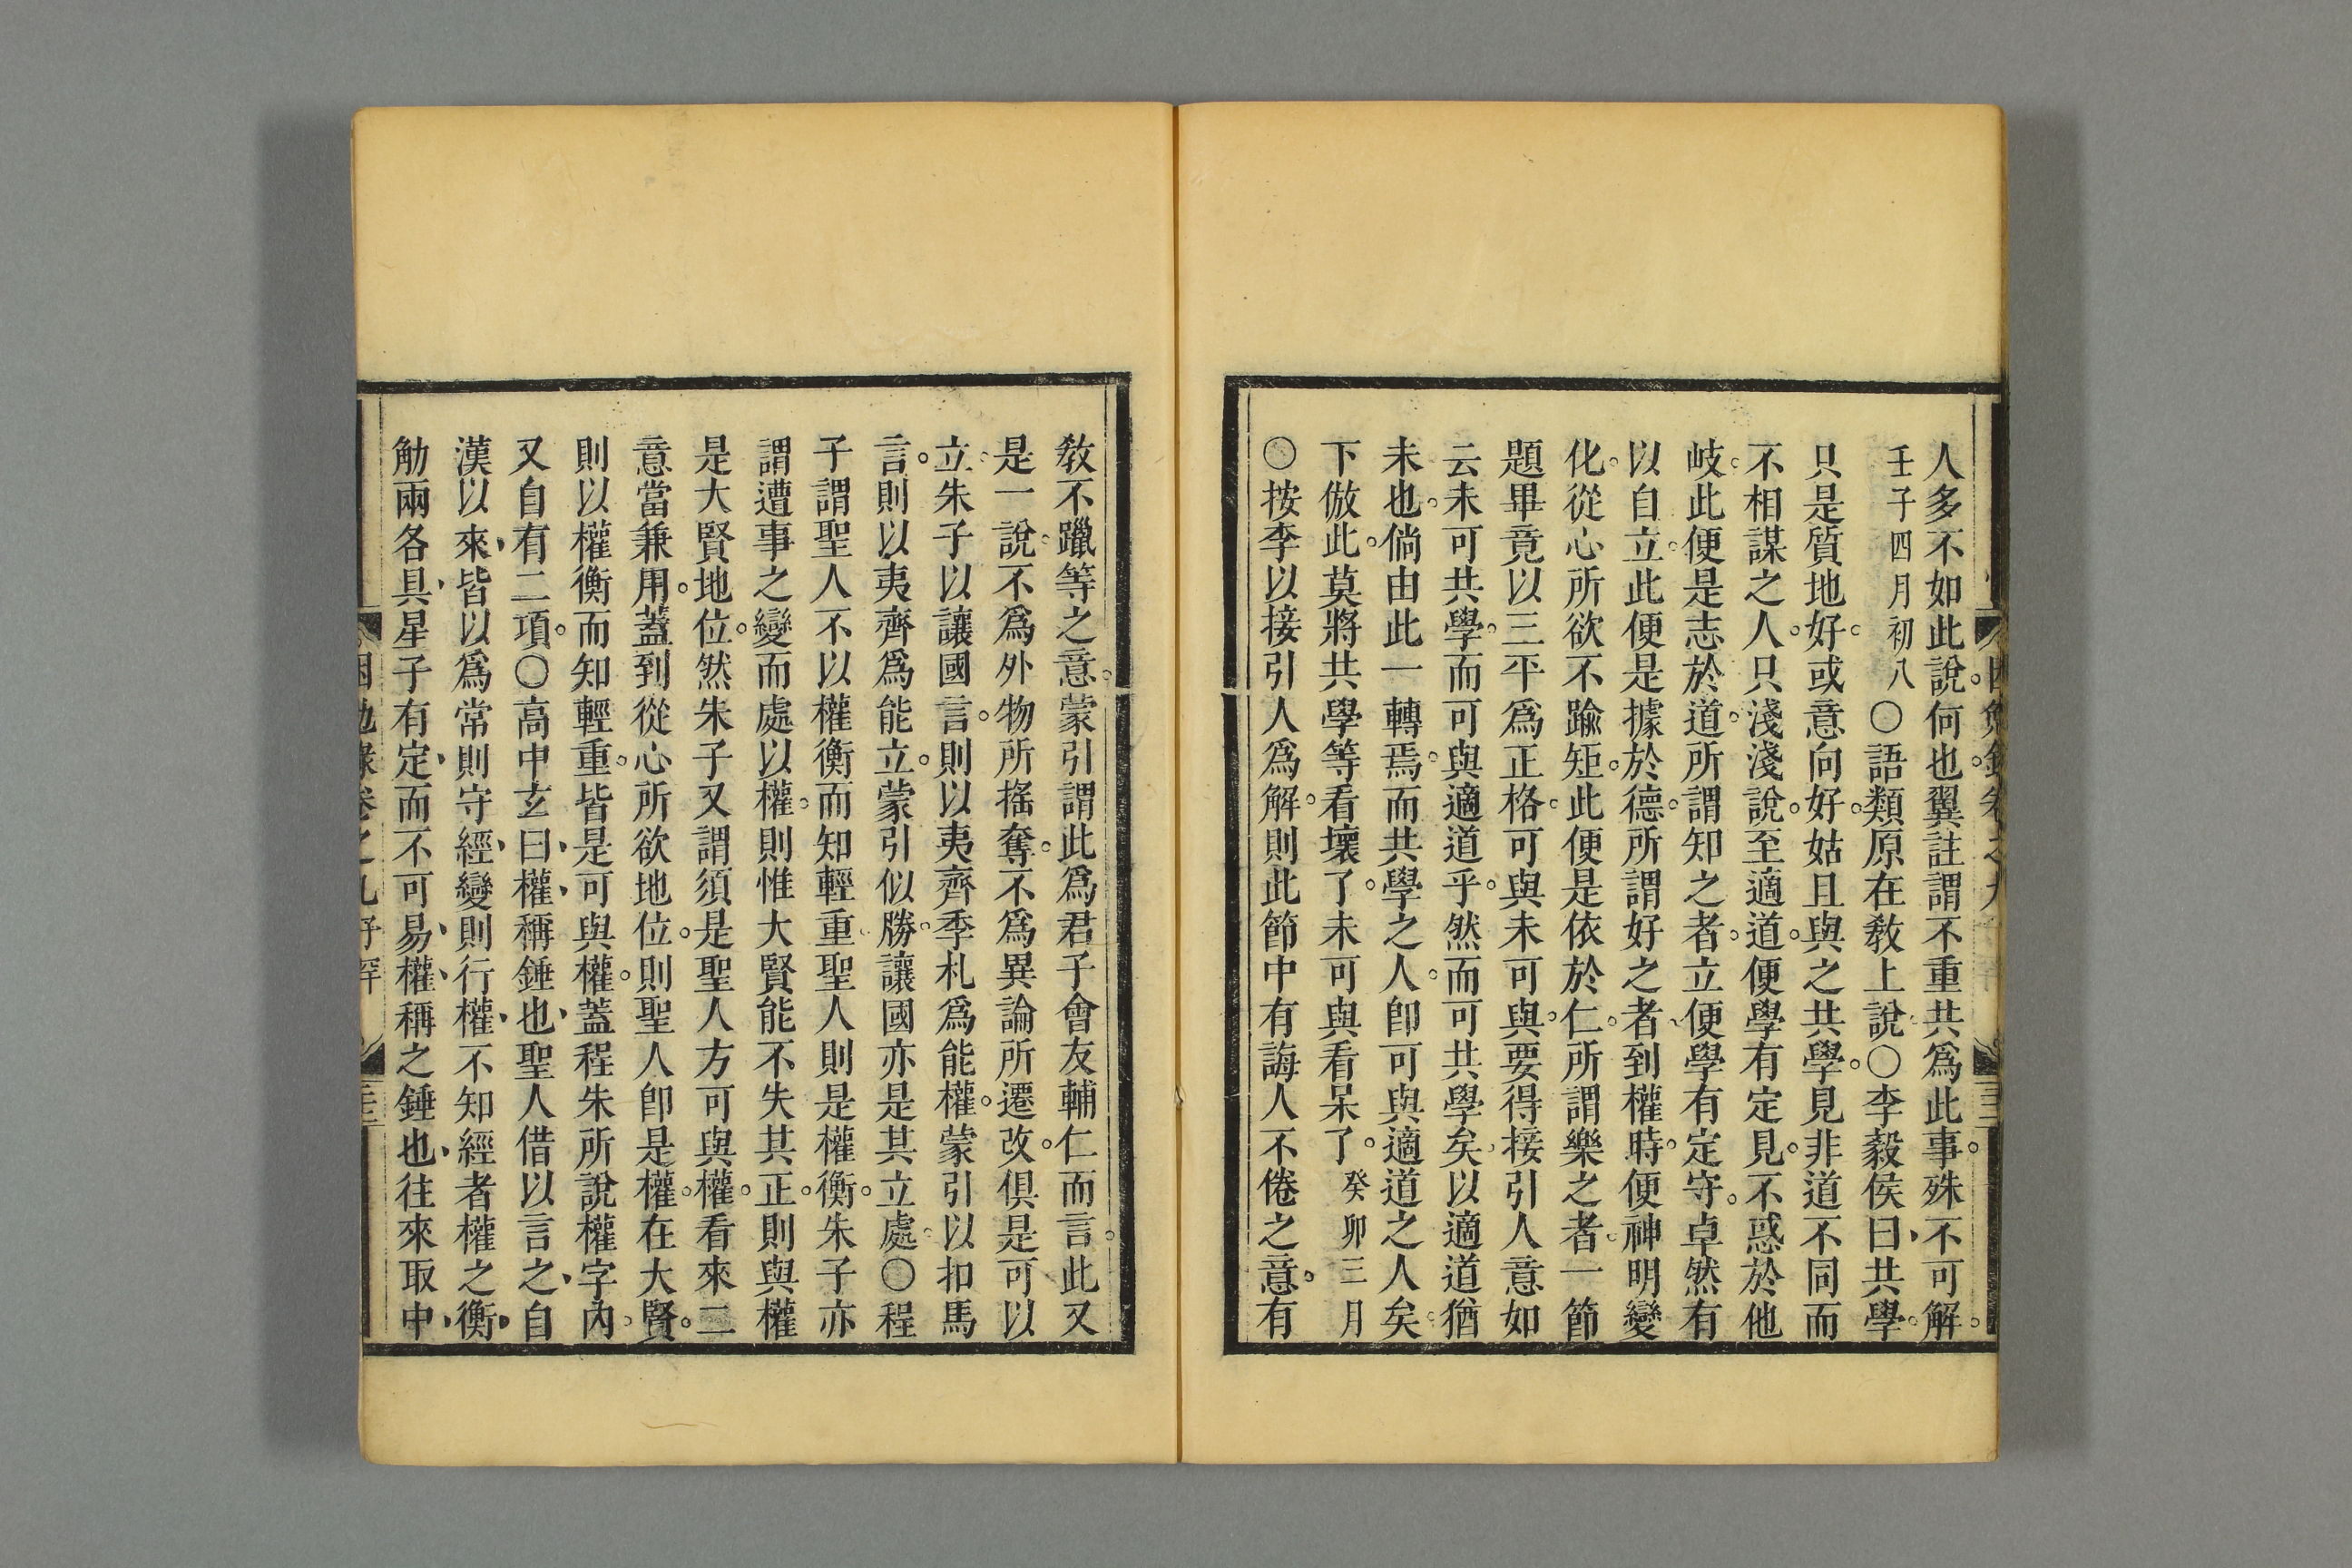 人多不如此說何也翼註謂不重共爲此事殊不可解
壬子四月初八〇語類原在敎上說〇李毅侯曰共學
只是質地好或意向好姑且與之共學見非道不同而
不相謀之人只淺淺說至適道便學有定見不惑於他
岐此便是志於道所謂知之者立便學有定守卓然有
以自立此便是據於德所謂好之者到權時便神明變
化從心所欲不踰矩此便是依於仁所謂樂之者一節
題畢竟以三平爲正格可與未可與要得接引人意如
云未可共學而可與適道乎然而可共學矣以適道猶
未也倘由此一轉焉而共學之人卽可與適道之人矣
下倣此莫將共學等看壞了未可與看呆了癸卯三月
〇按李以接引人爲解則此節中有誨人不倦之意有
敎不躐等之意蒙引謂此爲君子會友輔仁而言此又
是一說不爲外物所搖奪不爲異論所遷改俱是可以
立朱子以讓國言則以夷齊季札爲能權蒙引以扣馬
言則以夷齊爲能立蒙引似勝讓國亦是其立處〇程
子謂聖人不以權衡而知輕重聖人則是權衡朱子亦
謂遭事之變而處以權則惟大賢能不失其正則與權
是大賢地位然朱子又謂須是聖人方可與權看來二
意當兼用蓋到從心所欲地位則聖人卽是權在大賢
則以權衡而知輕重皆是可與權蓋程朱所說權字內
又自有二項〇高中玄曰權稱錘也聖人借以言之自
漢以來皆以爲常則守經變則行權不知經者權之衡
觔兩各具星子有定而不可易權稱之錘也往來取中